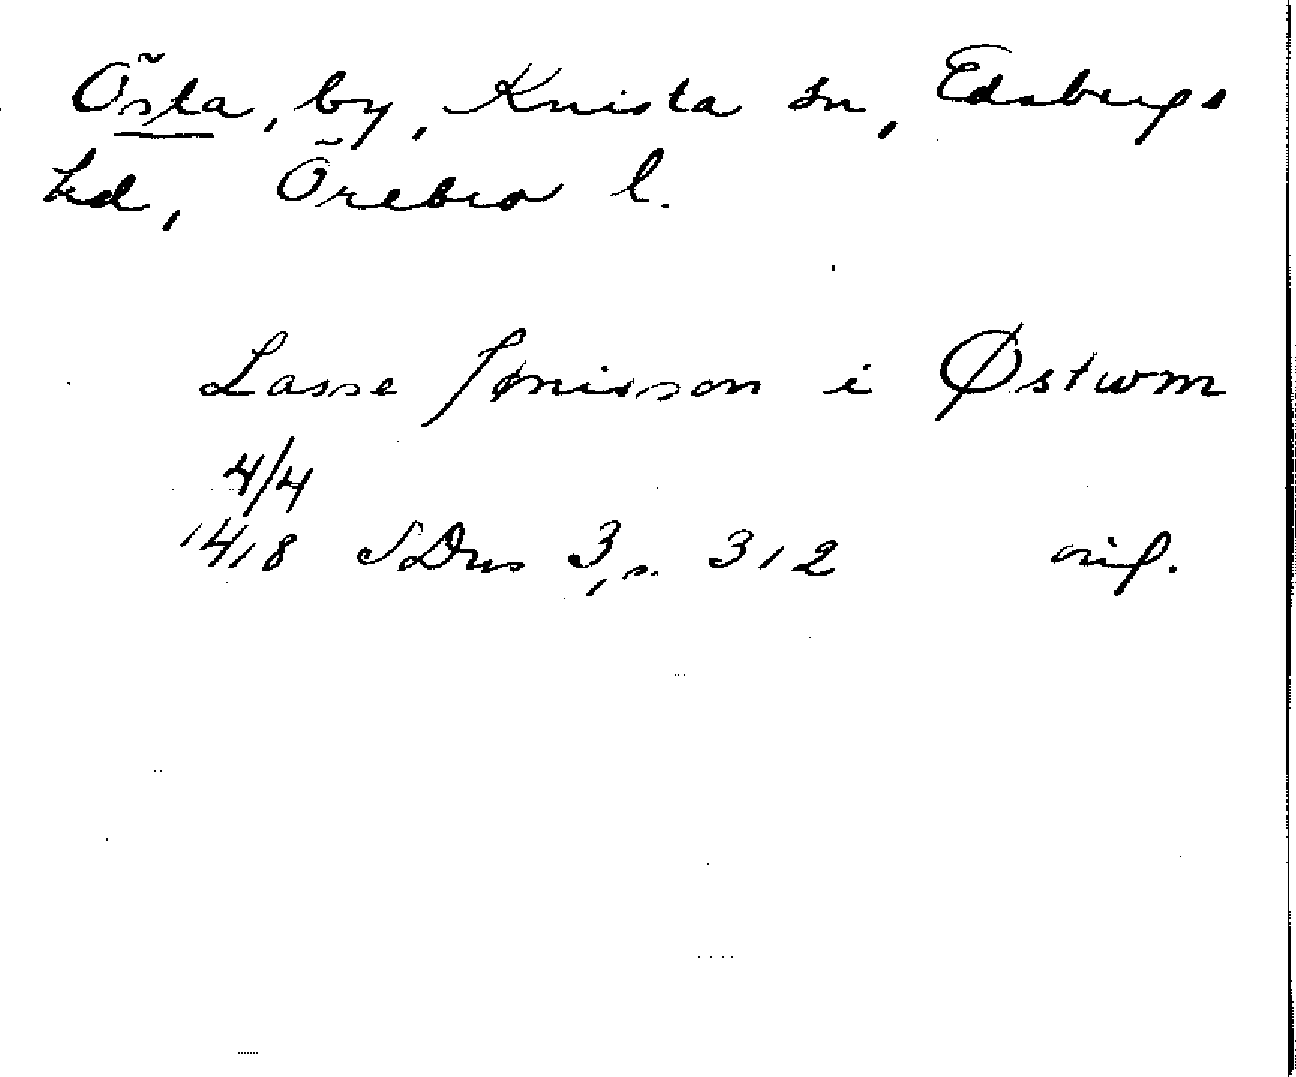 Östa, by, Knista sn, Edsbergs
hd, Örebro l.
Lasse Jønisson i Østwm
4/4
1418 SDns 3, s. 312 orig.